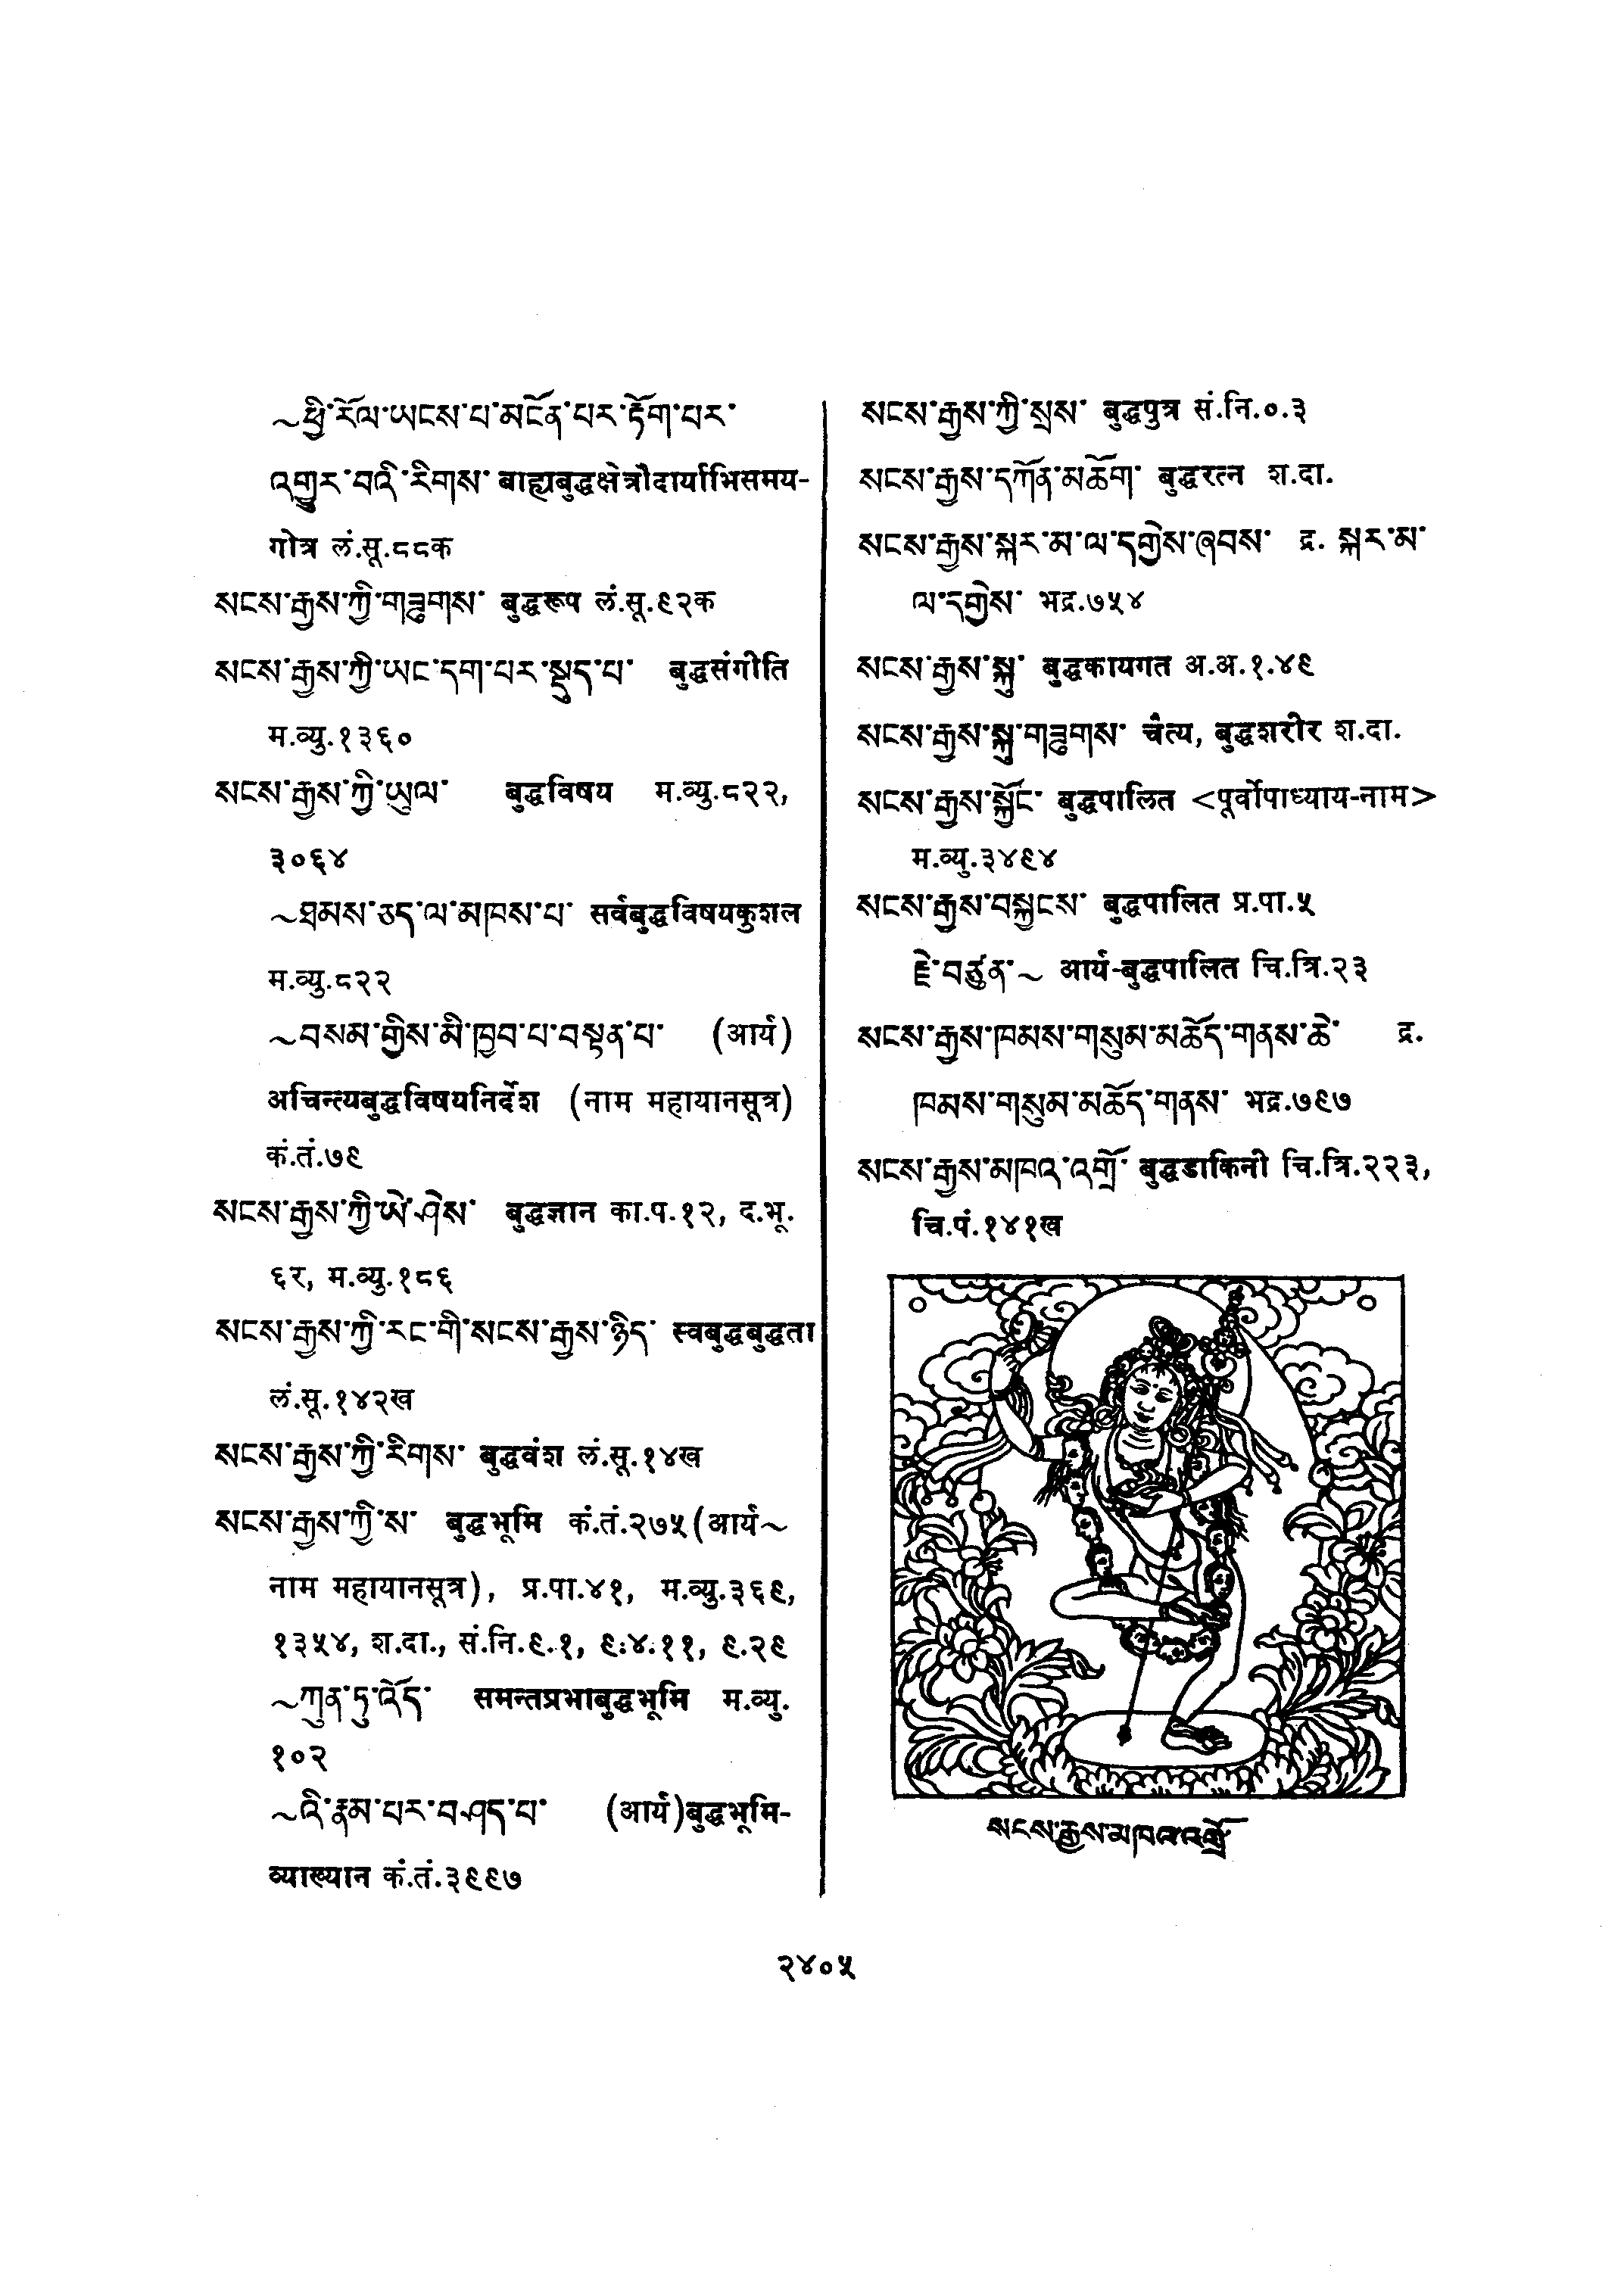 ~ཕྱི་རོལ་ཡངས་པ་མངོན་པར་རྟོག་པར་
འགྱུར་བའི་རིགས་ बाह्यबुद्धक्षेत्रौदार्याभिसमय-
गोत्र लं.सू.८८क
སངས་རྒྱས་ཀྱི་གཟུགས་ बुद्धरूप लं.सू.९२क
སངས་རྒྱས་ཀྱི་ཡང་དག་པར་སྡུད་པ་ बुद्धसंगीति
म.व्यु.१३६०
སངས་རྒྱས་ཀྱི་ཡུལ་ बुद्धविषय म.व्यु.८२२,
३०६४
~ཐམས་ཅད་ལ་མཁས་པ་ सर्वबुद्धविषयकुशल
म.व्यु.८२२
~བསམ་གྱིས་མི་ཁྱབ་པ་བསྟན་པ་ (आर्य)
अचिन्त्यबुद्धविषयनिर्देश (नाम महायानसूत्र)
कं.तं.७९
སངས་རྒྱས་ཀྱི་ཡེ་ཤེས་ बुद्धज्ञान का.प.१२, द.भू.
६र, म.व्यु.१८६
སངས་རྒྱས་ཀྱི་རང་གི་སངས་རྒྱས་ཉིད་ स्वबुद्धबुद्धता
लं.सू.१४२ख
སངས་རྒྱས་ཀྱི་རིགས་ बुद्धवंश लं.सू.१४ख
སངས་རྒྱས་ཀྱི་ས་ बुद्धभूमि कं.तं.२७५(आर्य~
नाम महायानसूत्र), प्र.पा.४१, म.व्यु.३६९,
१३५४, श.दा., सं.नि.९.१, ९:४.११, ९.२९
~ཀུན་ཏུ་འོད་ समन्तप्रभाबुद्धभूमि म.व्यु.
१०२
~འི་རྣམ་པར་བཤད་པ་ (आर्य)बुद्धभूमि-
व्याख्यान कं.तं.३९९७
སངས་རྒྱས་ཀྱི་སྲས་ बुद्धपुत्र सं.नि.०.३
སངས་རྒྱས་དཀོན་མཆོག་ बुद्धरत्न श.दा.
སངས་རྒྱས་སྐར་མ་ལ་དགྱེས་ཞབས་ द्र. སྐར་མ་
ལ་དགྱེས་ भद्र.७५४
སངས་རྒྱས་སྐུ་ बुद्धकायगत अ.अ.१.४९
སངས་རྒྱས་སྐུ་གཟུགས་ चैत्य, बुद्धशरीर श.दा.
སངས་རྒྱས་སྐྱོང་ बुद्धपालित <पूर्वोपाध्याय-नाम>
म.व्यु.३४९४
སངས་རྒྱས་བསྐྱངས་ बुद्धपालित प्र.पा.५
རྗེ་བཙུན་~ आर्य-बुद्धपालित चि.त्रि.२३
སངས་རྒྱས་ཁམས་གསུམ་མཆོད་གནས་ཆེ་ द्र.
ཁམས་གསུམ་མཆོད་གནས་ भद्र.७९७
སངས་རྒྱས་མཁའ་འགྲོ་ बुद्धडाकिनी चि.त्रि.२२३,
चि.पं.१४१ख
སངས་རྒྱས་མཁའ་འགྲོ་
२४०५